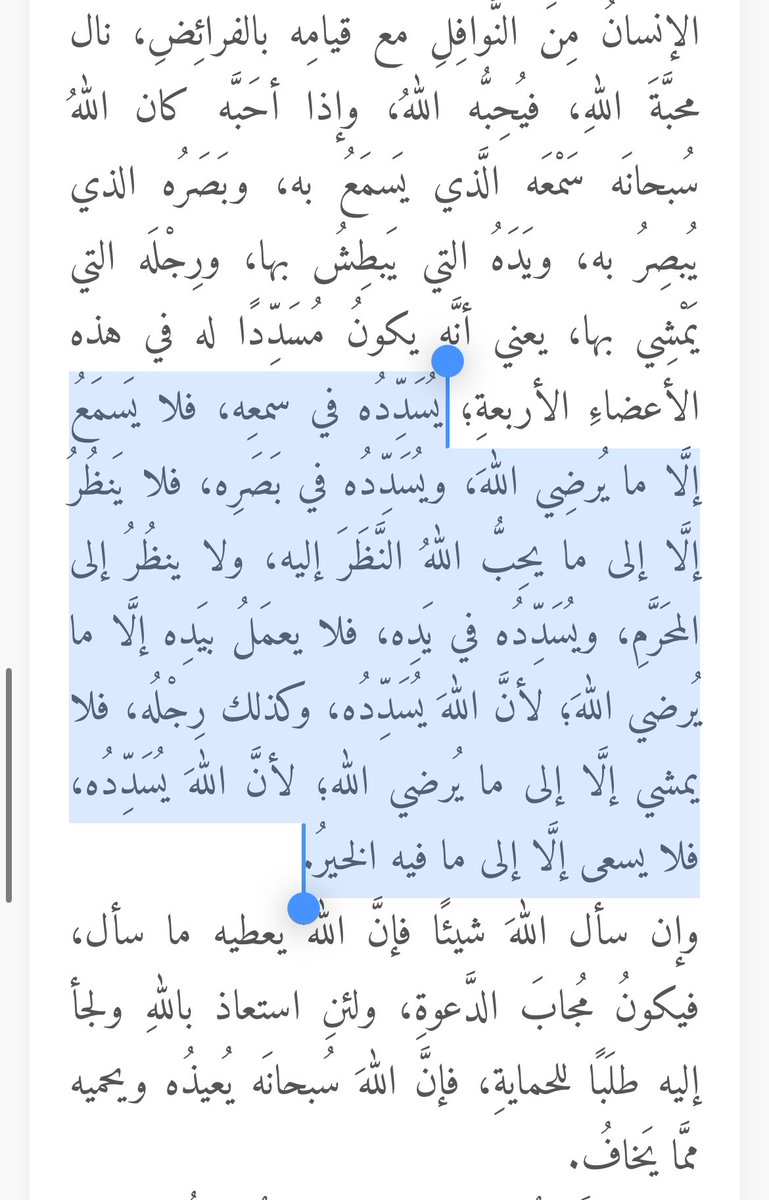 الإنسانُ مِنَ النَّوافِلِ مع قيامِه بالفرائِضِ، نال
محبَّةَ اللهِ، فيُحِبُّه اللهُ، وإذا أحَبَّه كان اللهُ
سُبحانَه سَمْعَه الَّذي يَسمَعُ به، وبَصَرُه الذي
يُبصِرُ به، ويَدَهُ التي يَبطِشُ بها، ورِجْلَه التي
يَمْشِي بها، يعني أنَّه يكونُ مُسَدِّدًا له في هذه
الأعضاءِ الأربعةِ؛ يُسَدِّدُه في سمعِه، فلا يَسمَعُ
إلَّا ما يُرضِي اللهَ، ويُسَدِّدُه في بَصَرِه، فلا يَنظُرُ
إلَّا إلى ما يحِبُّ اللهُ النَّظَرَ إليه، ولا ينظُرُ إلى
المحَرَّمِ، ويُسَدِّدُه في يَدِه، فلا يعمَلُ بيَدِه إلَّا ما
يُرضي اللهَ؛ لأنَّ اللهَ يُسَدِّدُه، وكذلك رِجْلُه، فلا
يمشي إلَّا إلى ما يُرضي الله؛ لأنَّ اللهَ يُسَدِّدُه،
فلا يسعى إلَّا إلى ما فيه الخيرُ.
وإن سأل اللهَ شيئًا فإنَّ اللهَ يعطيه ما سأل،
فيكونُ مُجابَ الدَّعوةِ، ولئنِ استعاذ باللهِ ولجأ
إليه طلَبًا للحمايةِ، فإنَّ اللهَ سُبحانَه يُعيذُه ويحميه
ممَّا يَخافُ.